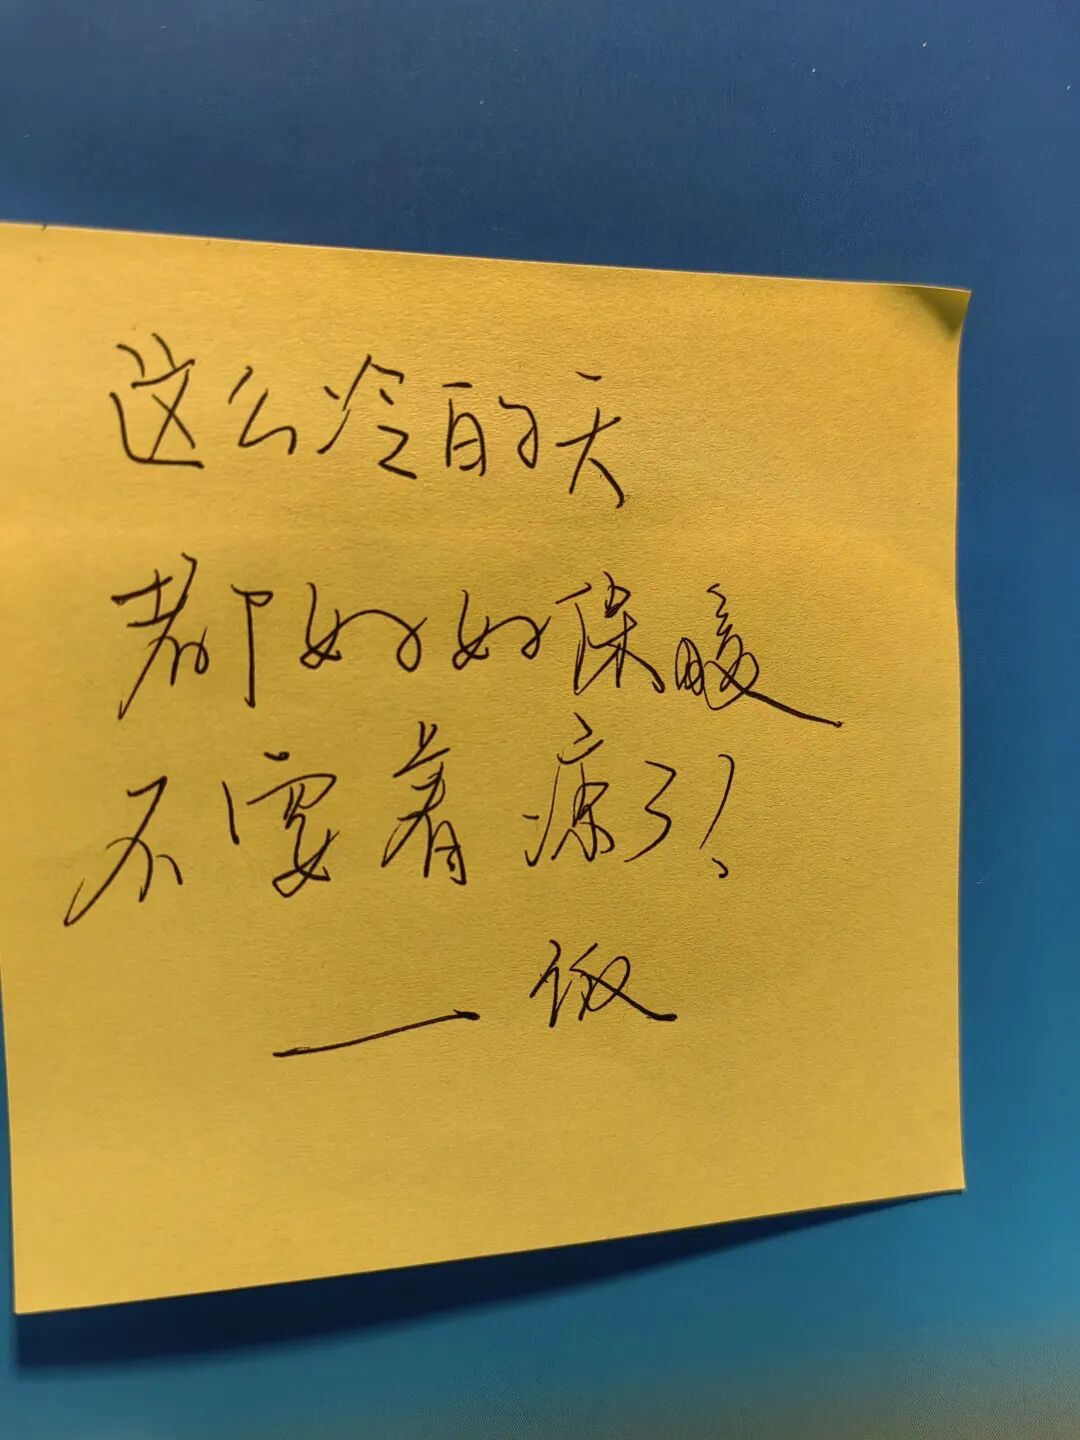 这么冷的天
都好好保暖
不要着凉了！